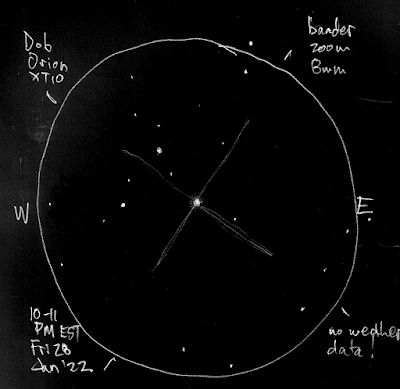 Dob
Orion
XT10
Baader
zoom
8mm
W
E.
10-11
PM EST
Fri 28
Jan '22
no weather
data!